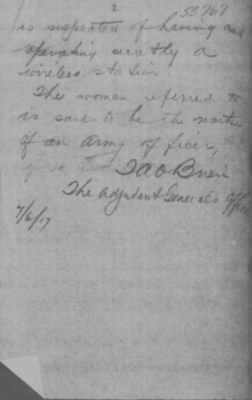 2
55767
is suspected of having and
operating secretly a
wireless station
The woman referred to
is said to be the mother
of an army officer,
The Adjutant General's Office
7/6/17